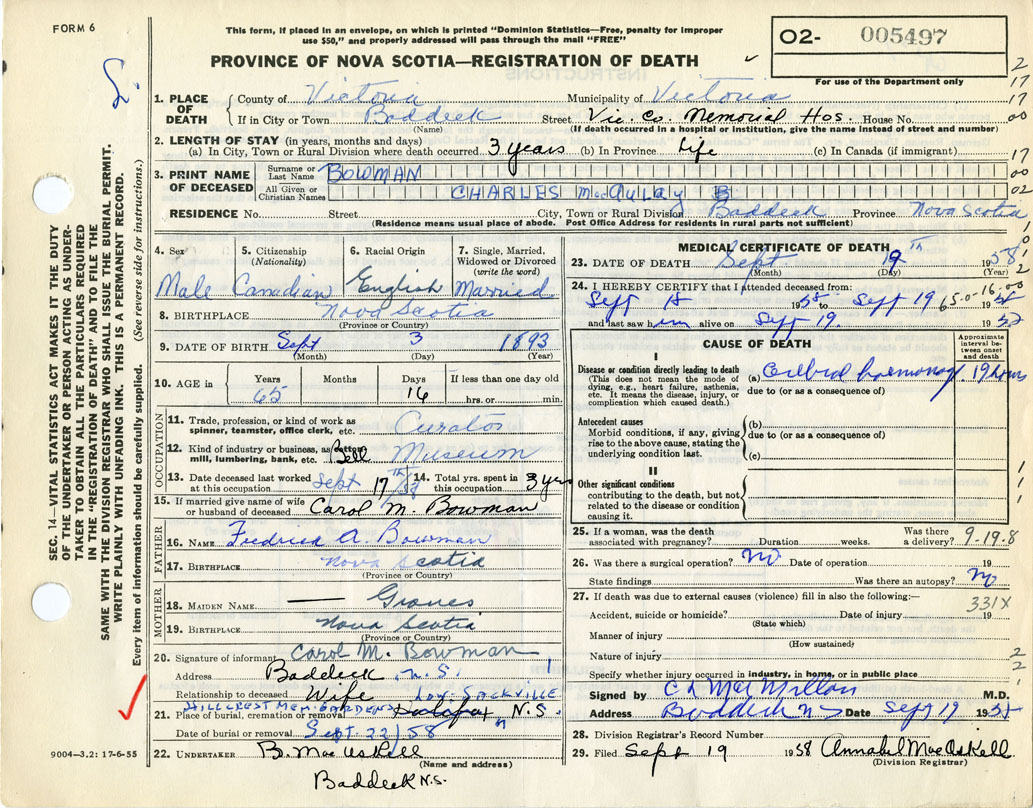 FORM 6
This form, if placed in an envelope, on which is printed "Dominion Statistics—Free, penalty for improper
use $50," and properly addressed will pass through the mail "FREE"
O2- 005497
PROVINCE OF NOVA SCOTIA—REGISTRATION OF DEATH
For use of the Department only
1. PLACE OF DEATH
County of Victoria Municipality of Victoria
If in City or Town Baddeck Street Vic. Co. Memorial Hos. House No.
(Name) (If death occurred in a hospital or institution, give the name instead of street and number)
2. LENGTH OF STAY (in years, months and days)
(a) In City, Town or Rural Division where death occurred 3 years (b) In Province Life (c) In Canada (if immigrant)
3. PRINT NAME OF DECEASED
Surname or Last Name BOWMAN
All Given or Christian Names CHARLES MacAulay B
RESIDENCE No. Street City, Town or Rural Division Baddeck Province Nova Scotia
(Residence means usual place of abode. Post Office Address for residents in rural parts not sufficient)
4. Sex 5. Citizenship (Nationality) 6. Racial Origin 7. Single, Married, Widowed or Divorced (write the word)
Male Canadian English Married
8. BIRTHPLACE Nova Scotia
(Province or Country)
9. DATE OF BIRTH Sept 3 1893
(Month) (Day) (Year)
10. AGE in Years Months Days If less than one day old
65 16 hrs. or min.
OCCUPATION
11. Trade, profession, or kind of work as
spinner, teamster, office clerk, etc. Curator
12. Kind of industry or business, as cotton
mill, lumbering, bank, etc. Bell Museum
13. Date deceased last worked
at this occupation Sept 17th/58
14. Total yrs. spent in
this occupation 3 yrs
15. If married give name of wife
or husband of deceased Carol M. Bowman
FATHER
16. NAME Fredrick A. Bowman
17. BIRTHPLACE Nova Scotia
(Province or Country)
MOTHER
18. MAIDEN NAME — Groves
19. BIRTHPLACE Nova Scotia
(Province or Country)
20. Signature of informant Carol M. Bowman
Address Baddeck, N.S.
Relationship to deceased Wife
HILLCREST MEM. GARDENS LOW. SACKVILLE
21. Place of burial, cremation or removal Halifax N.S.
Date of burial or removal Sept. 22/58
22. UNDERTAKER B. MacAskell
(Name and address)
Baddeck N.S.
MEDICAL CERTIFICATE OF DEATH
23. DATE OF DEATH Sept 19th 1958
(Month) (Day) (Year)
24. I HEREBY CERTIFY that I attended deceased from:
Sept 18 1958 to Sept 19 1958
65-0-16-00
and last saw him alive on Sept 19. 1958
CAUSE OF DEATH
Approximate interval between onset and death
I
Disease or condition directly leading to death
(This does not mean the mode of dying, e.g., heart failure, asthenia, etc. It means the disease, injury, or complication which caused death.)
(a) Cerebral haemorrhage 19 hours
due to (or as a consequence of)
Antecedent causes
Morbid conditions, if any, giving rise to the above cause, stating the underlying condition last.
(b)
due to (or as a consequence of)
(c)
II
Other significant conditions
contributing to the death, but not related to the disease or condition causing it.
25. If a woman, was the death
associated with pregnancy? Duration weeks. Was there a delivery? 9-19.8
26. Was there a surgical operation? No Date of operation 19
State findings Was there an autopsy? No
27. If death was due to external causes (violence) fill in also the following:—
331X
Accident, suicide or homicide? Date of injury 19
(State which)
Manner of injury
(How sustained)
Nature of injury
Specify whether injury occurred in industry, in home, or in public place
Signed by C L MacMillan M.D.
Address Baddeck NS Date Sept 19 1958
28. Division Registrar's Record Number
29. Filed Sept 19 1958 Annabel MacAskell
(Division Registrar)
SEC. 14—VITAL STATISTICS ACT MAKES IT THE DUTY
OF THE UNDERTAKER OR PERSON ACTING AS UNDER-
TAKER TO OBTAIN ALL THE PARTICULARS REQUIRED
IN THE "REGISTRATION OF DEATH" AND TO FILE THE
SAME WITH THE DIVISION REGISTRAR WHO SHALL ISSUE THE BURIAL PERMIT.
WRITE PLAINLY WITH UNFADING INK. THIS IS A PERMANENT RECORD.
Every item of information should be carefully supplied. (See reverse side for instructions.)
9004-3.2: 17-6-55
2
17
17
00
17
00
02